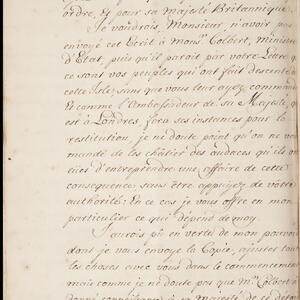 ordre, et pour sa majesté Britannique.
Je voudrois, Monsieur, n'avoir pas
envoyé cet Ecrit à mons.r Colbert, Ministre
d'Etat, puis qu'il paroit par votre Lettre q
ce sont vos peuples qui ont fait descente
cette isle, sans que vous leur ayez commandé
Et comme l'Ambassadeur de sa Majesté,
est à Londres, fera ses instances pour la
restitution, je ne doute point qu'on ne vo
mande de les châtier des audaces qu'ils on
d'entreprendre une affaire de cette
consequence, sans être appuyez de vôtre
authorité: En ce cas je vous offre en mon
particulier ce qui dépend de moy.
J'aurois pû en vertu de mon pouvoir
dont je vous envoye la Copie, ajuster tou
les choses avec vous dans le commencemen
mais comme je ne doute pas que M.r Colbert n
donné connoissance à sa majesté de ce